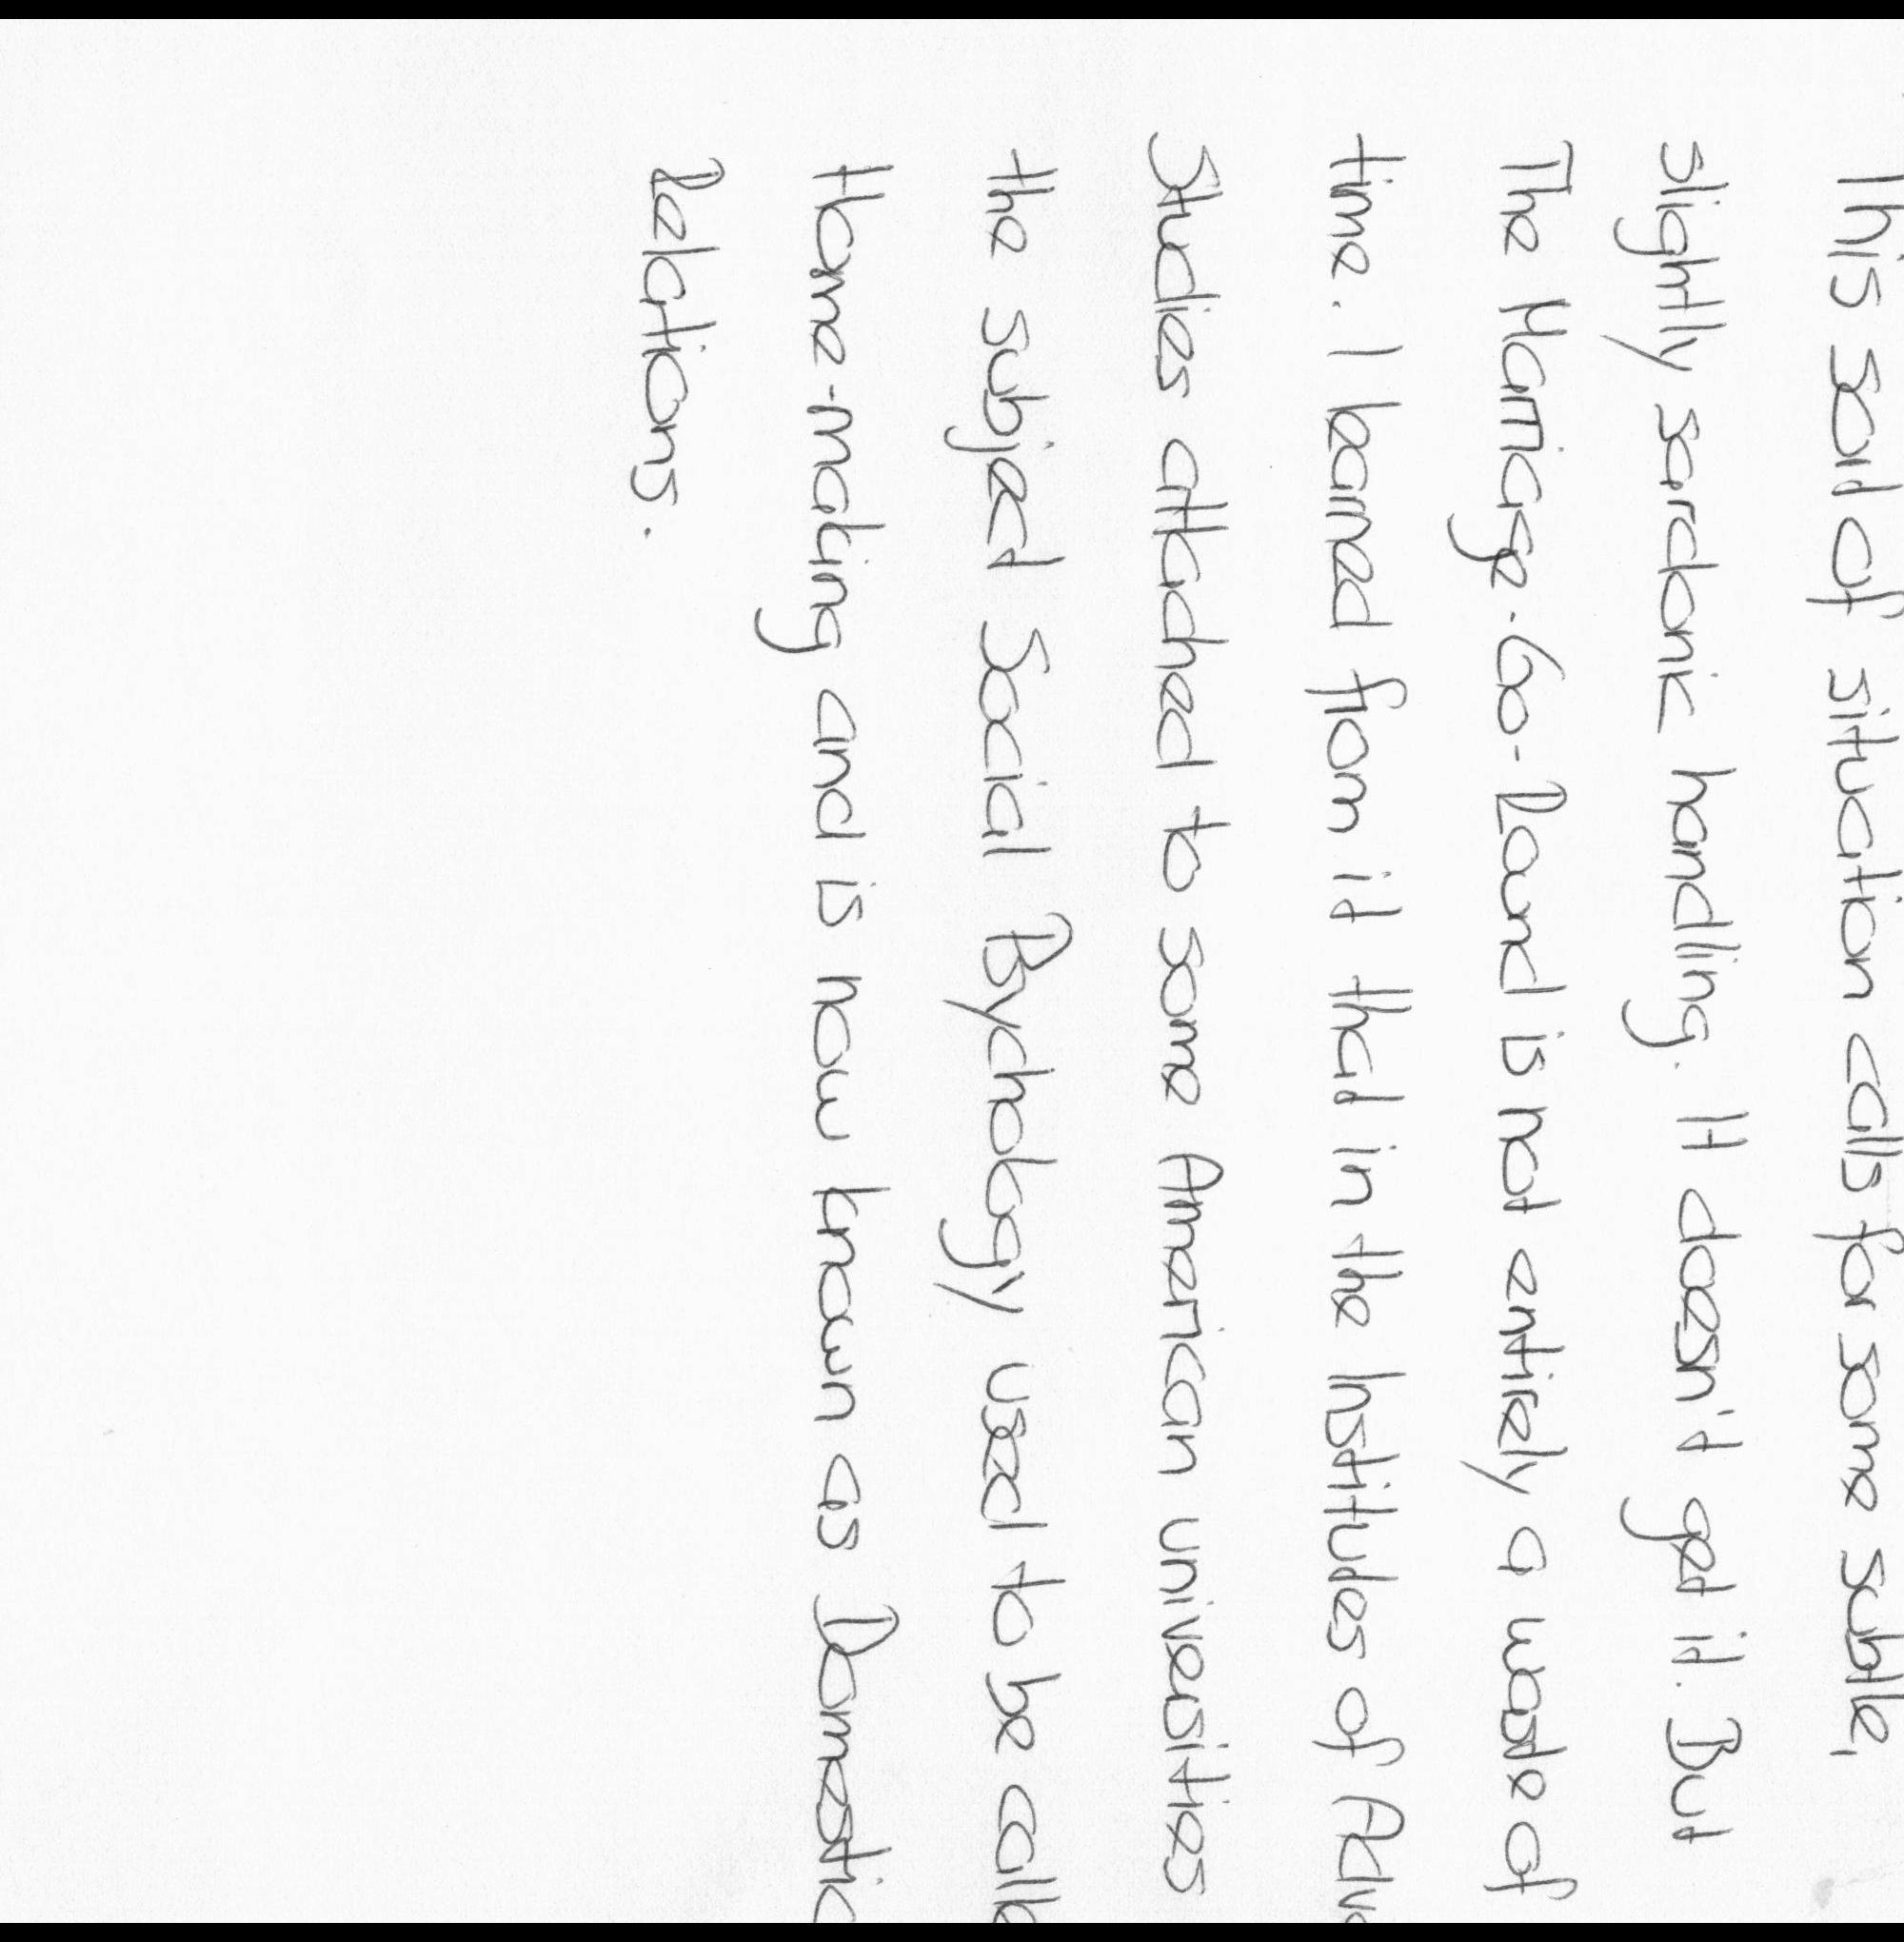 This sort of situation calls for some subtle,
slightly sardonic handling. It doesn't get it. But
The Marriage-Go-Round is not entirely a waste of
time. I learned from it that in the Institutes of Adv
Studies attached to some American universities
the subject Social Psychology used to be calle
Home-making and is now known as Domestic
Relations.